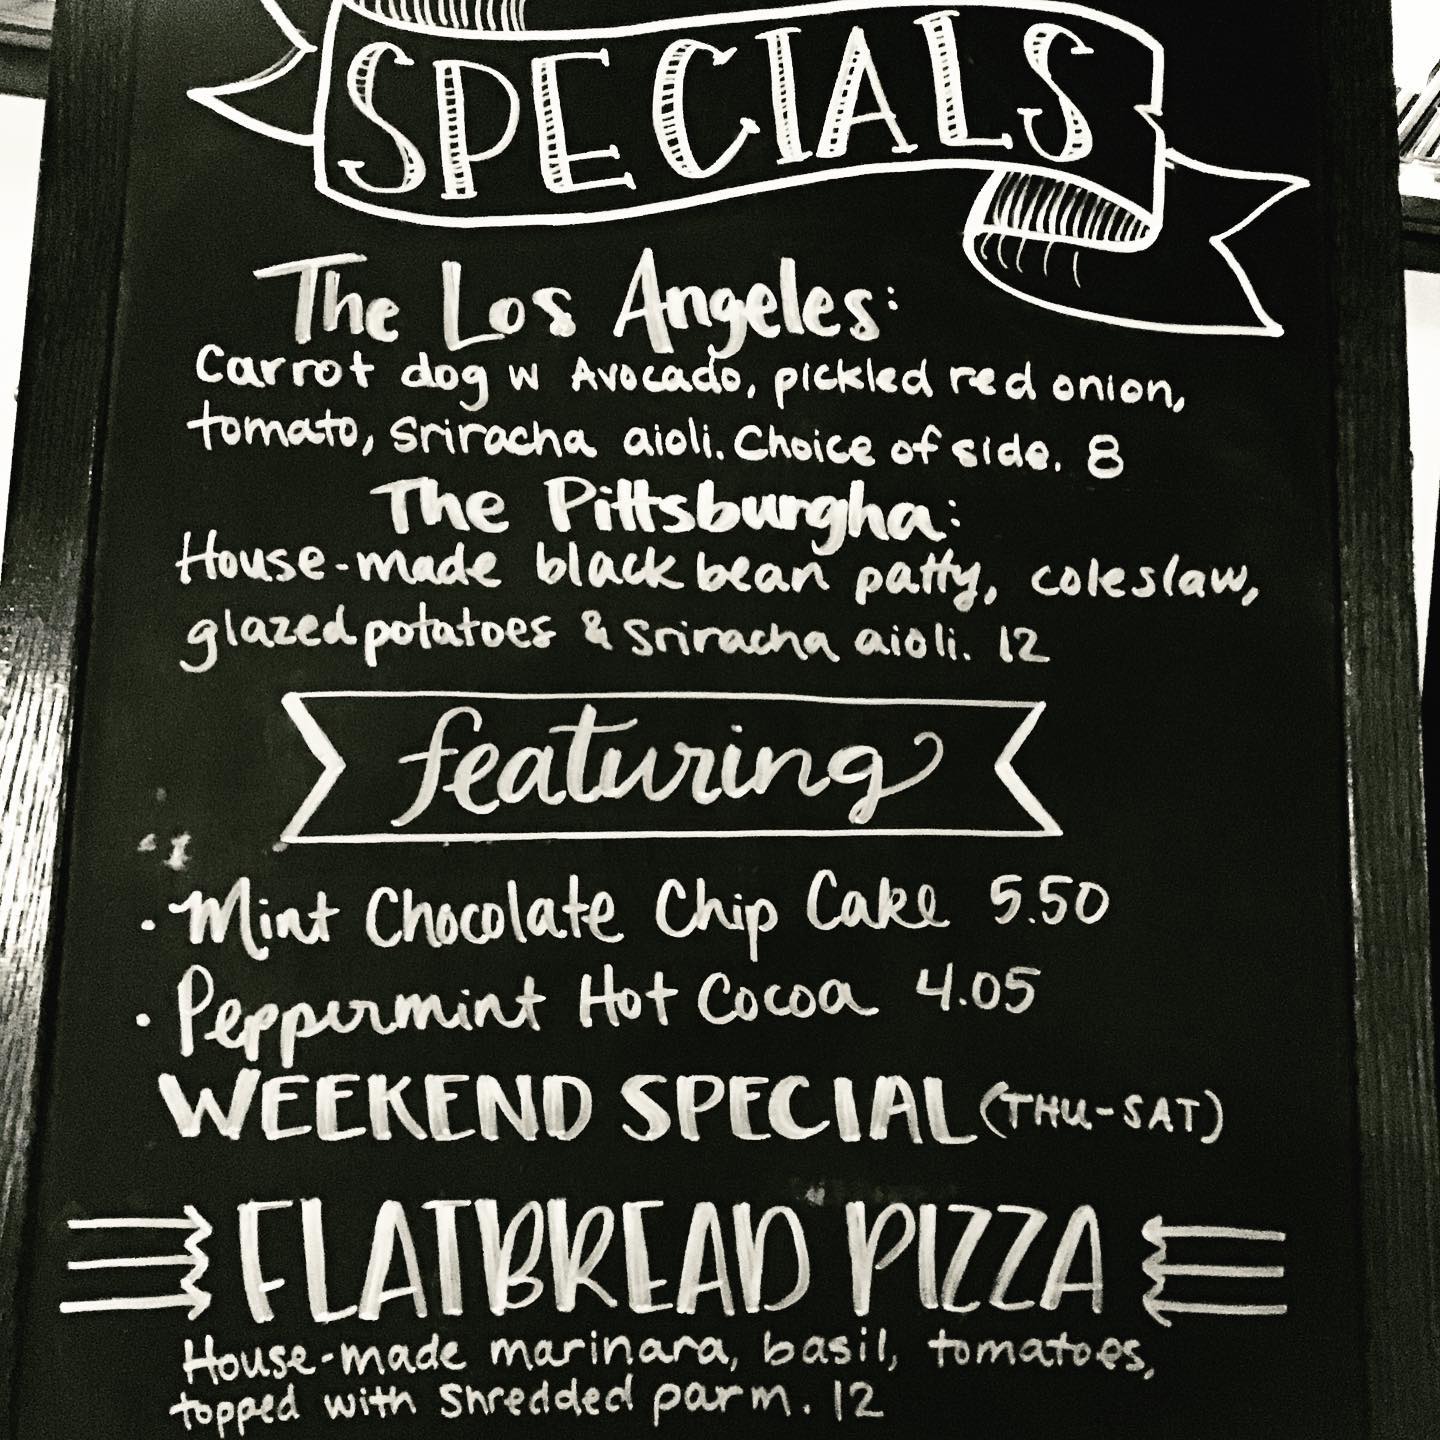 SPECIALS
The Los Angeles:
Carrot dog w Avocado, pickled red onion,
tomato, sriracha aioli. Choice of side. 8
The Pittsburgha:
House-made black bean patty, coleslaw,
glazed potatoes & sriracha aioli. 12
featuring
• Mint Chocolate Chip Cake 5.50
• Peppermint Hot Cocoa 4.05
WEEKEND SPECIAL (THU-SAT)
FLATBREAD PIZZA
House-made marinara, basil, tomatoes,
topped with shredded parm. 12